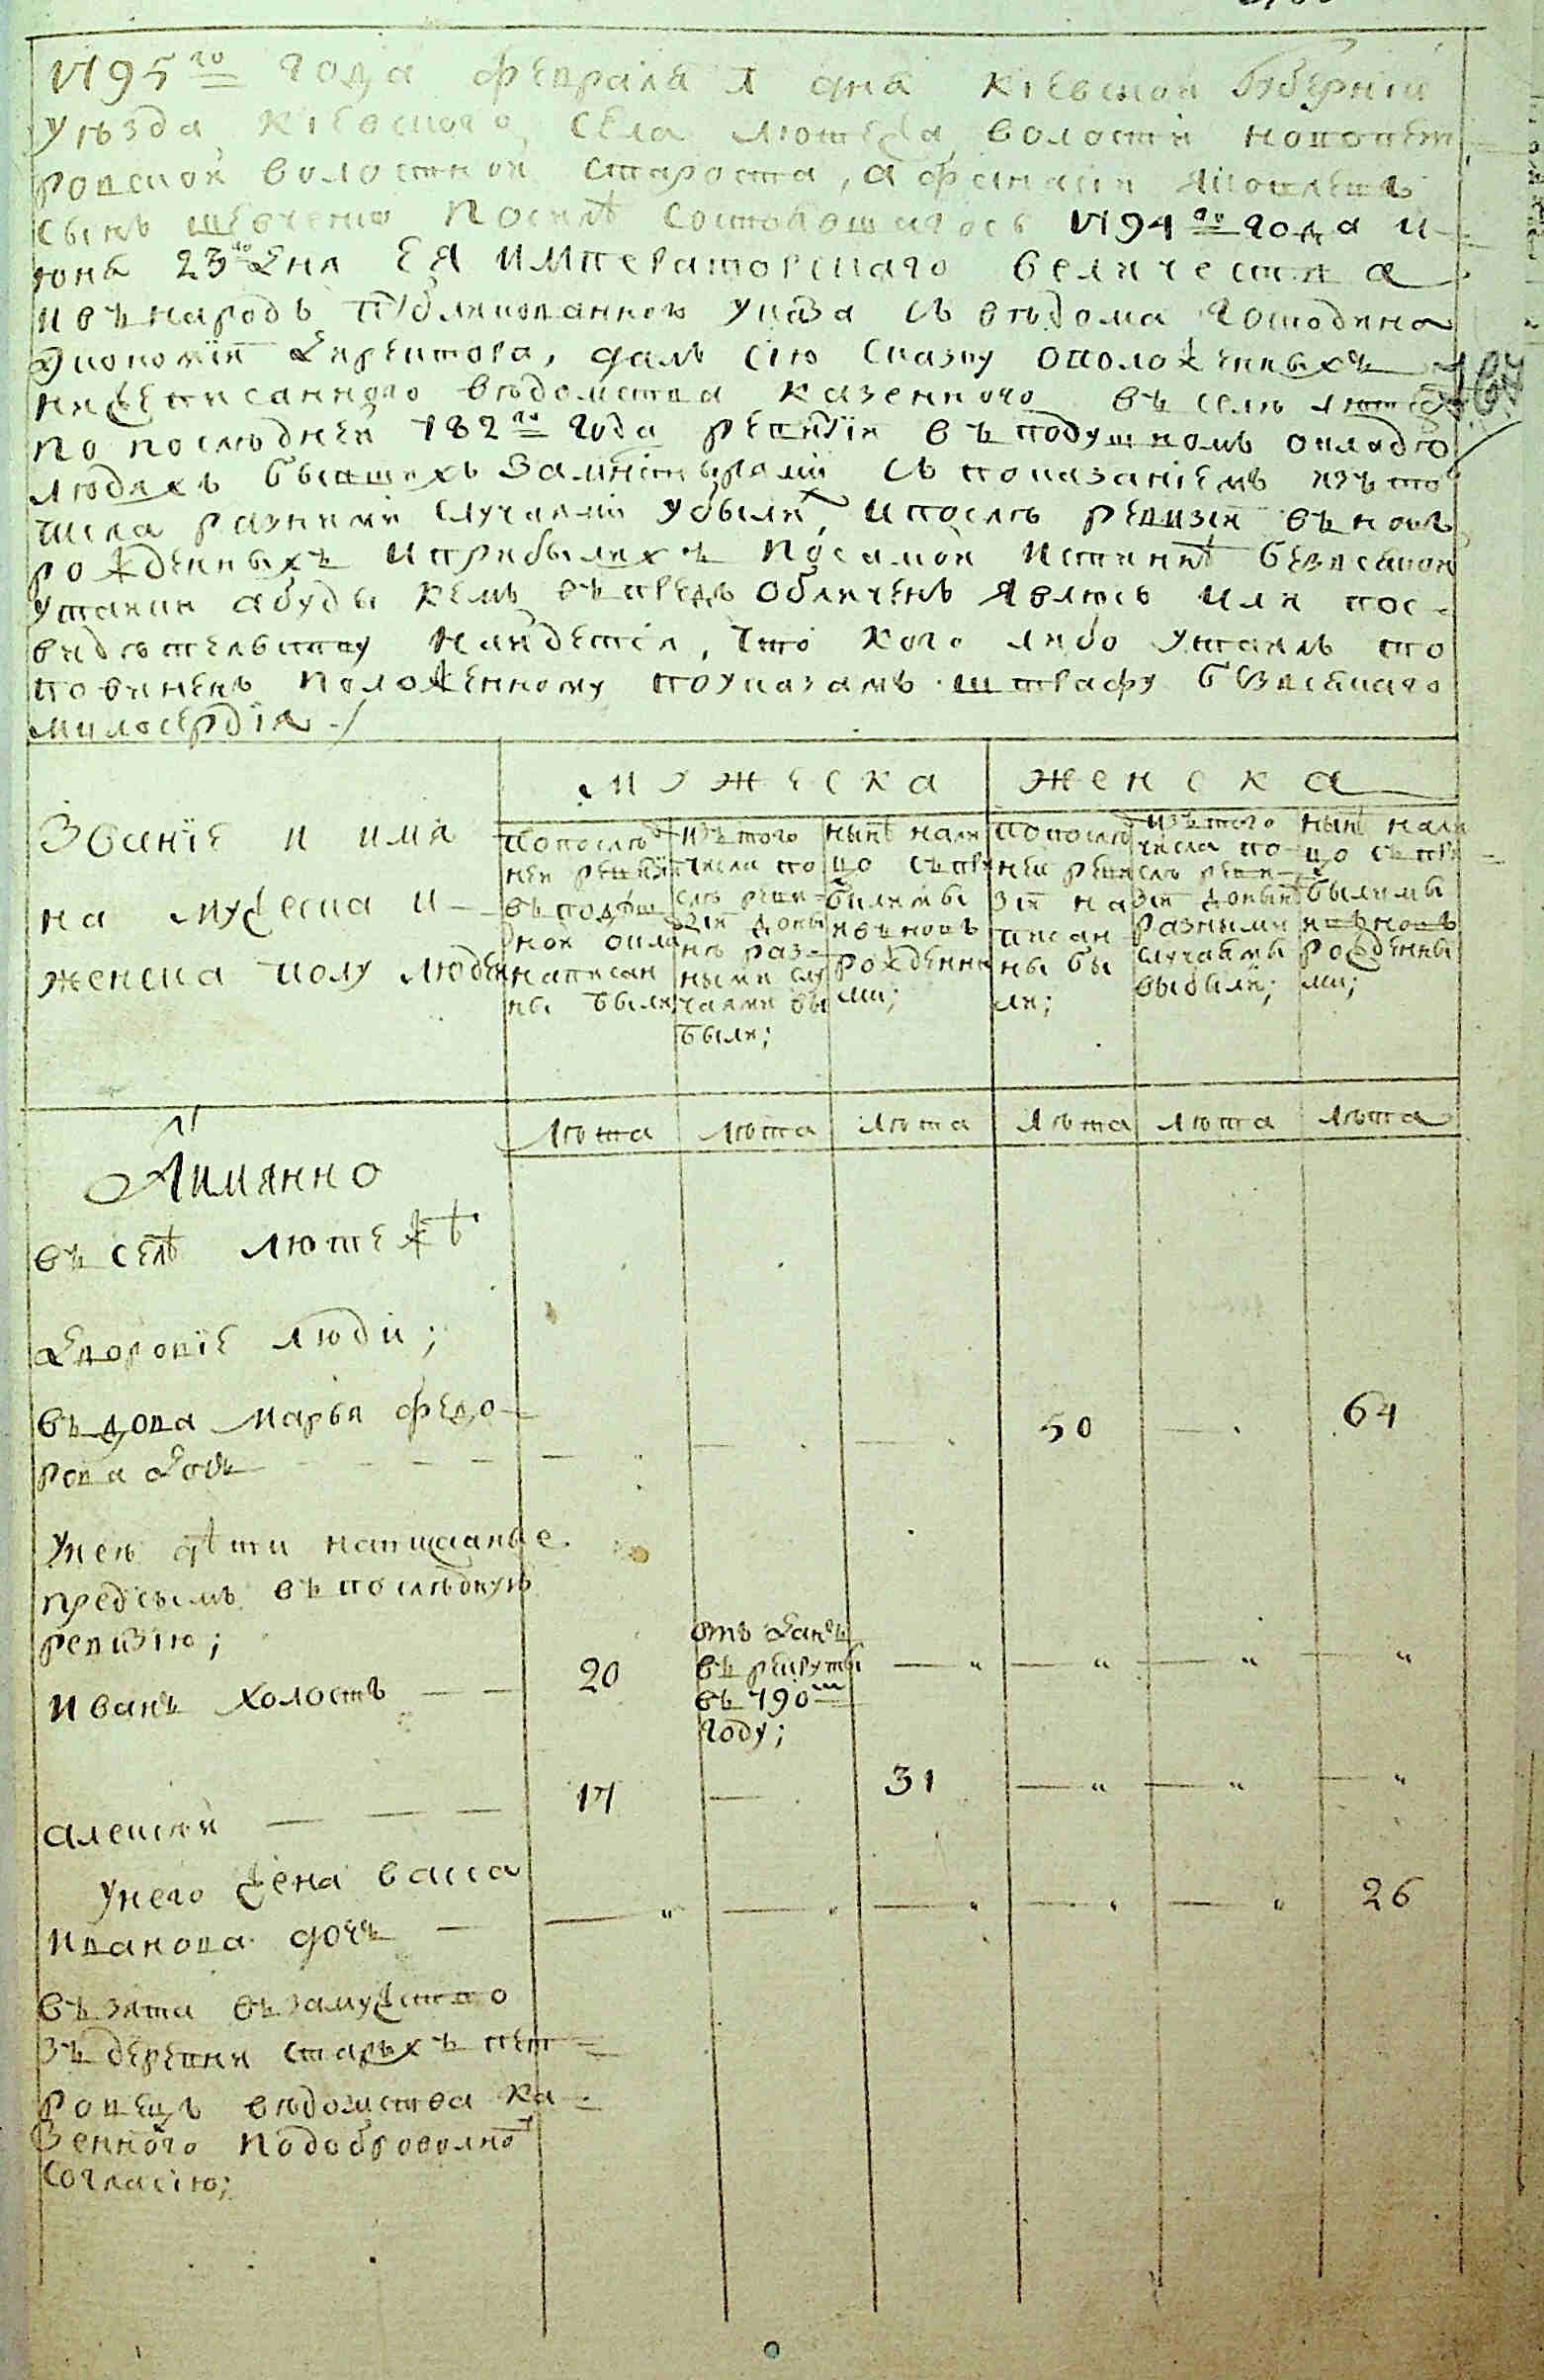 1795го года февраля 1 дня Киевской Губернии
уезда Киевского села Лютежа волости новопет
ровской волостной староста, афанасий
сынъ Шевченко после состоявшагось 1794го года и
юня 23го дня ЕЯ императорскаго величества
ивънародъ публикованного указа съ въдома господина
Економіи директора, далъ сію сказку оположенныхъ
нижеписанного въдомства казенного въ селъ Лютеже
по послъдней 782го года ревизіи въ подушномъ окладъ
людяхъ бывшихъ замнстырями съ показаніемъ изъ то
числа разними случаями убыли, ипослъ ревизіи въновъ
рожденныхъ иприбылихъ посамой истинѣ безвсякой
утайки абуды кемъ въпредь обличенъ явлюсь или пос-
видътельству найдется, что кого либо утаилъ то
повиненъ положенному поуказамъ штрафу безвсякаго
милосердія
мужеска женска
Званіе и имя
на мужеска и
женска полу людей
попослъд
ней ревизіи
въподуш
ной окла
написан
ны были
изътого
числа по
слъ реви
зіи доны
нъ раз-
ными слу
чаями вы
были;
нынѣ нали
цо съпри
билимы
ивъновъ
рожденны
ми;
попослъд
ней реви
зіи на
писан
ны бы
ли;
изътого
числа по-
слъ реви-
зіи донынѣ
разными
случаямы
выбыли;
нынѣ нали
цо съпри
былимы
ивъновъ
рожденны
ми;
лъта лъта лъта лъта лъта лъта
Аимянно
въ селѣ Лютежѣ
Дворовіе люди;
въдова Марья Федо-
рова дочь 50 64
Унеъ дѣти написанъе
предсымъ въпослъдную
ревизію;
Иванъ холостъ 20
отъ данъ
въ рекруты
въ 790м
году;
алексъй 17 31
Унего жена васса
Иванова дочь 26
въ зята въ замужство
зъ деревни старыхъ пет
ровецъ въдомства ка-
зенного подоброволно
согласію;